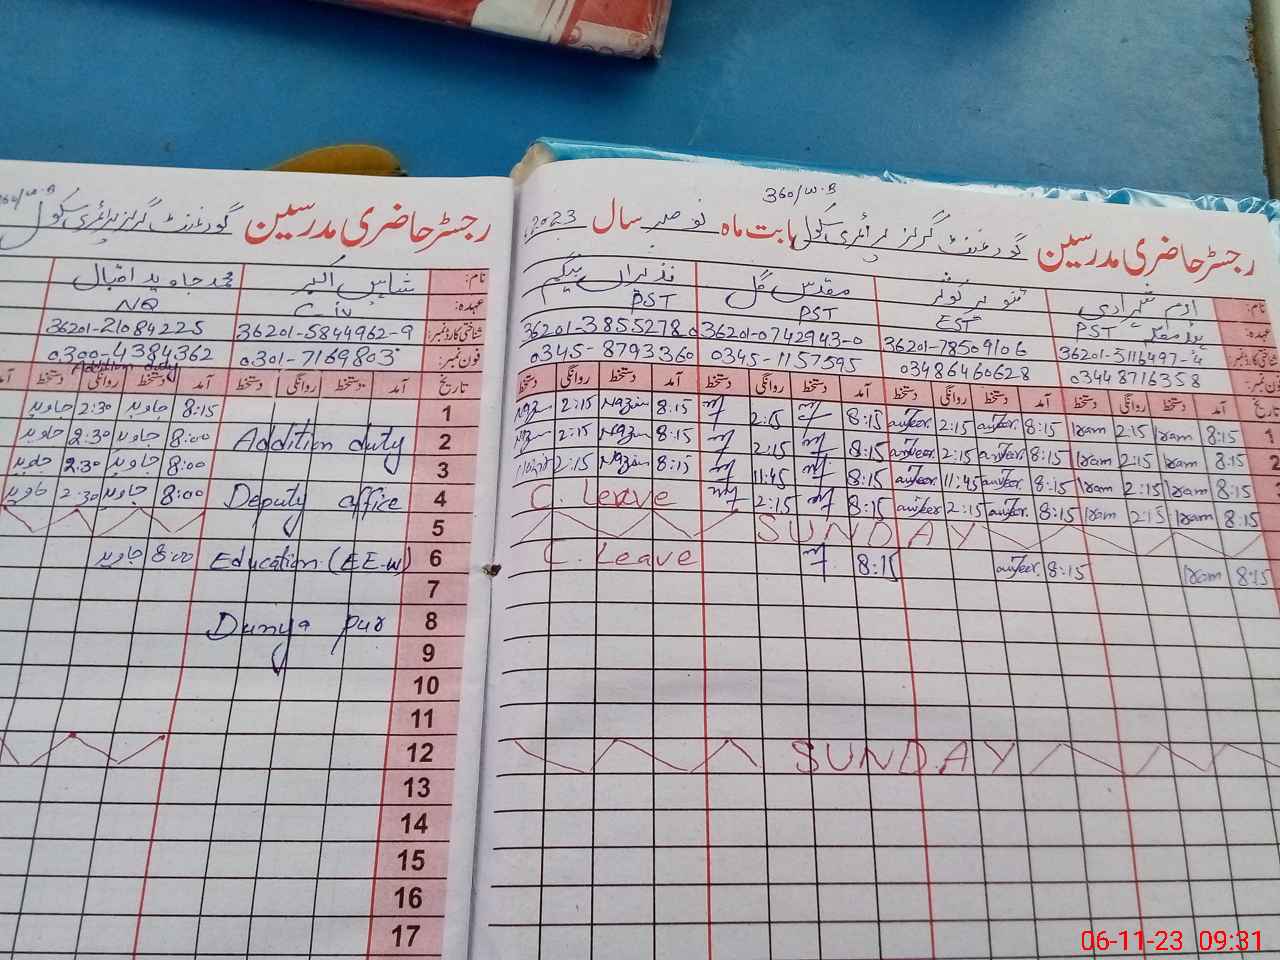 360/W.B
رجسٹر حاضری مدرسین گورنمنٹ گرلز پرائمری سکول بابت ماہ نومبر سال 2023
نام: ارم شہزادی تنویر کوثر مقدس گل نذیراں بیگم
عہدہ: PST EST PST PST
36201-5116497-4 36201-78509106 36201-0742943-0 36201-3855278
03448716358 03486460628 0345-1157595 0345-8793360
آمد دستخط روانگی دستخط آمد دستخط روانگی دستخط آمد دستخط روانگی دستخط آمد دستخط روانگی دستخط
1 8:15 Iram 2:15 Iram 8:15 2:15 8:15 2:15 8:15 Nazir 2:15
2 8:15 Iram 2:15 Iram 8:15 2:15 8:15 2:15 8:15 Nazir 2:15
3 8:15 Iram 2:15 Iram 8:15 11:45 8:15 11:45 8:15 Nazir 2:15
8:15 Iram 2:15 Iram 8:15 2:15 8:15 2:15 C. Leave
SUNDAY
8:15 Iram 8:15 8:15 C. Leave
SUNDAY
360/W.B
رجسٹر حاضری مدرسین گورنمنٹ گرلز پرائمری سکول
نام: شاہس اکبر محمد جاوید اقبال
عہدہ: C-iv NQ
شناختی کارڈ نمبر: 36201-5844962-9 36201-21084225
فون نمبر: 0301-7169803 0300-4384362
Addition duty
تاریخ آمد دستخط روانگی دستخط آمد دستخط روانگی دستخط
1 8:15 جاوید 2:30 جاوید
2 Addition duty 8:00 جاوید 2:30 جاوید
3 8:00 جاوید 2:30 جاوید
4 Deputy office 8:00 جاوید 2:30 جاوید
5
6 Education (EE-W) 8:00 جاوید
7
8 Dunya pur
9
10
11
12
13
14
15
16
17
06-11-23 09:31